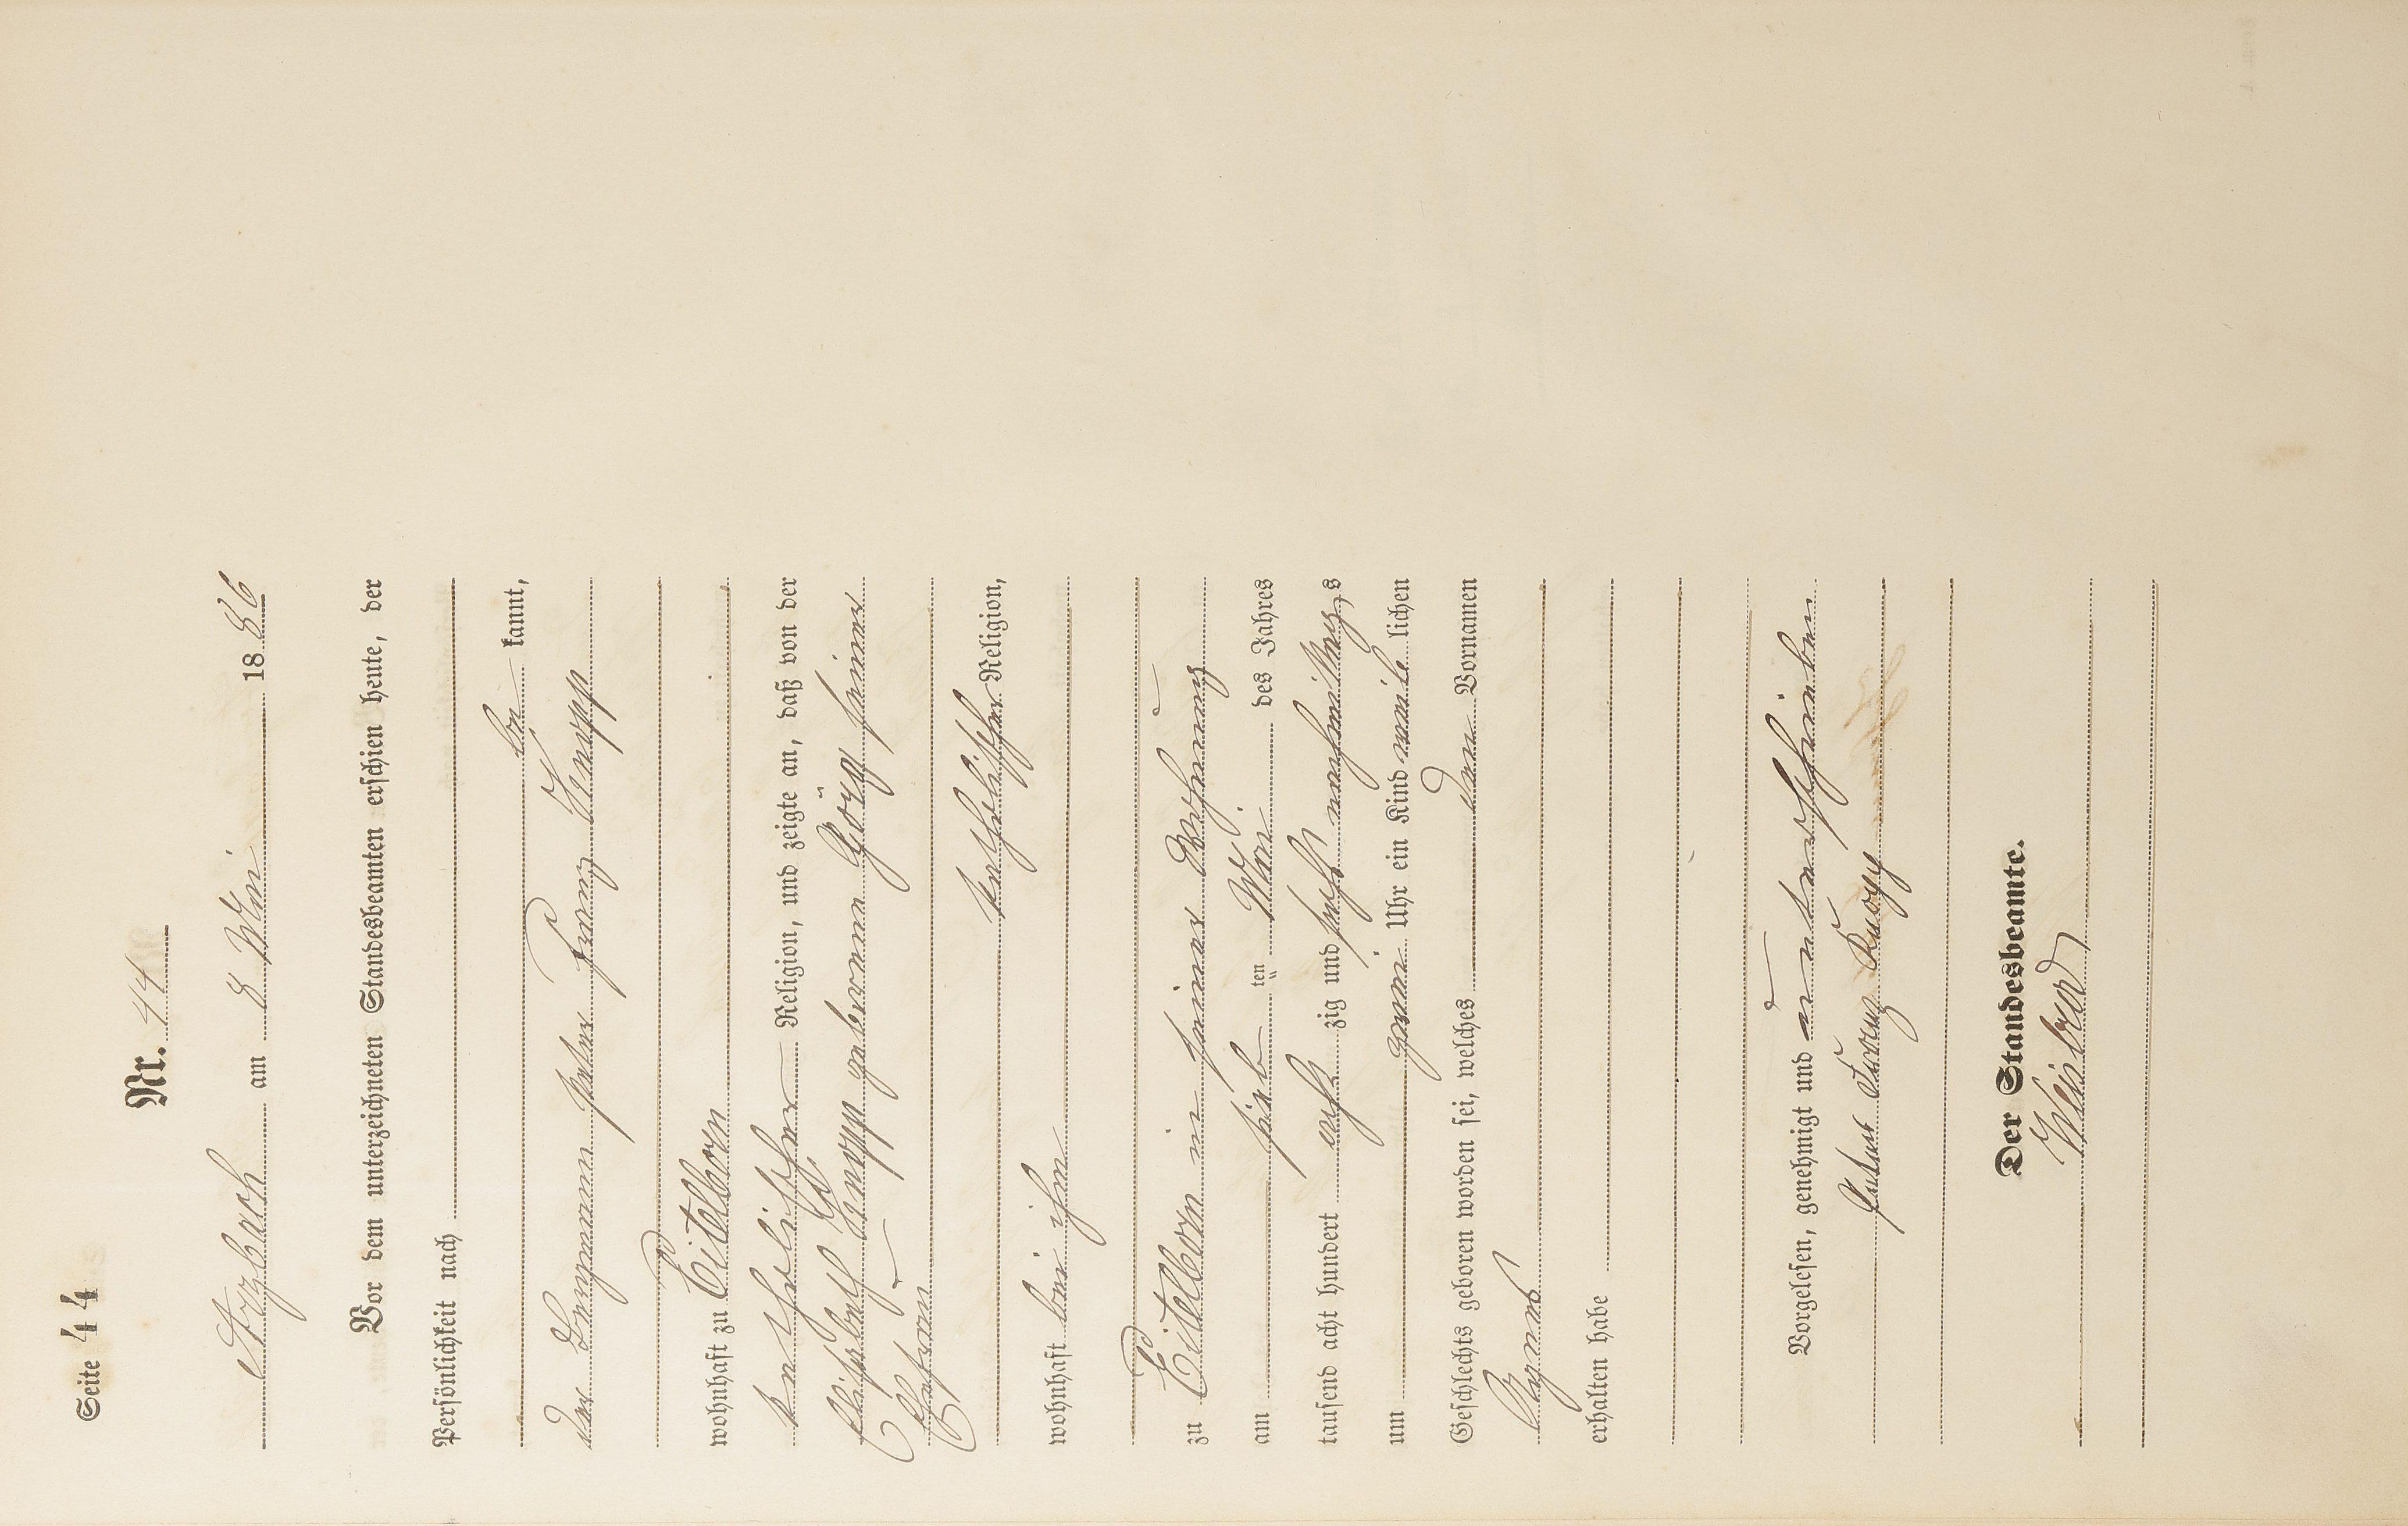 Seite 44
Nr. 44
Arzbach am 8 Mai 1886
Vor dem unterzeichneten Standesbeamten erschien heute, der
Persönlichkeit nach
be kannt,
der Bergmann Peter Franz Knopp
wohnhaft zu Eitelborn
katholischer Religion, und zeigte an, daß von der
Elisabeth Knopp geborene Görg seiner
Ehefrau
katholischer Religion,
wohnhaft bei ihm
zu Eitelborn in seiner Wohnung
am sieb ten Mai des Jahres
tausend acht hundert acht zig und sechs nachmittags
um zwei Uhr ein Kind weib lichen
Geschlechts geboren worden sei, welches den Vornamen
Agnes
erhalten habe
Vorgelesen, genehmigt und unterschrieben
Peter Franz Knopp
Der Standesbeamte.